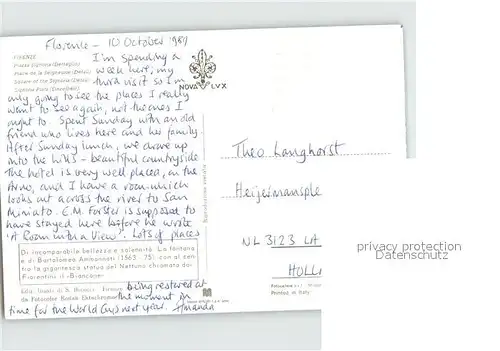 Florence - 10 October 1989
FIRENZE
Piazza Signoria (Dettaglio)
Place de la Seigneurie (Détail)
Square of the Signoria (Detail)
I'm spending a
week here; my
third visit so I'm
only going to see the places I really
want to see again, not the ones I
ought to. Spent Sunday with an old
friend who lives here and her family
After Sunday lunch, we drove up
into the hills - beautiful countryside
The hotel is very well placed, on the
Arno, and I have a room which
looks out across the river to San
Miniato. E.M. Forster is supposed to
have stayed here before he wrote
'A Room with a View'. Lots of places
Di incomparabile bellezza e solennità. La fontana
è di Bartolomeo Ammannati (1563-75), con al cen-
tro la gigantesca statua del Nettuno chiamato dai
Fiorentini il «Biancone»
being restored at
the moment in
time for the World Cup next year. Amanda
NOVA LVX
Riproduzione vietata
Theo Langhorst
Heijermansple
NL 3123 LA
HOLL
Printed in Italy
privacy protection
Datenschutz